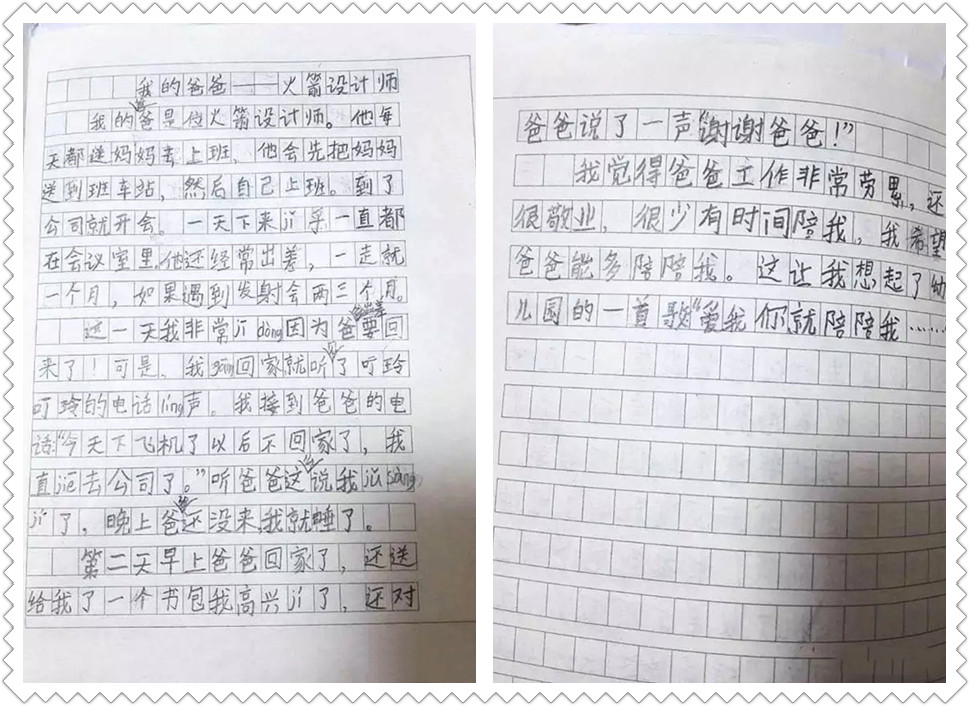 我的爸爸——火箭设计师
我的爸爸是位火箭设计师。他每
天都送妈妈去上班，他会先把妈妈
送到班车站，然后自己上班。到了
公司就开会。一天下来jī乎一直都
在会议室里。他还经常出差，一走就
一个月，如果遇到发射会两三个月。
这一天我非常jī dòng因为爸爸出差要回
来了！可是，我gāng回家就听到了叮玲
叮玲的电话líng声。我接到爸爸的电
话：“今天下飞机了以后不回家了，我
直jiē去公司了。”听爸爸这么说我jiù sàng
jí了，晚上爸爸还没来，我就睡了。
第二天早上爸爸回家了，还送
给我了一个书包我高兴jí了，还对
爸爸说了一声“谢谢爸爸！”
我觉得爸爸工作非常劳累，还
很敬业，很少有时间陪我，我希望
爸爸能多陪陪我。这让我想起了幼
儿园的一首歌“爱我你就陪陪我……